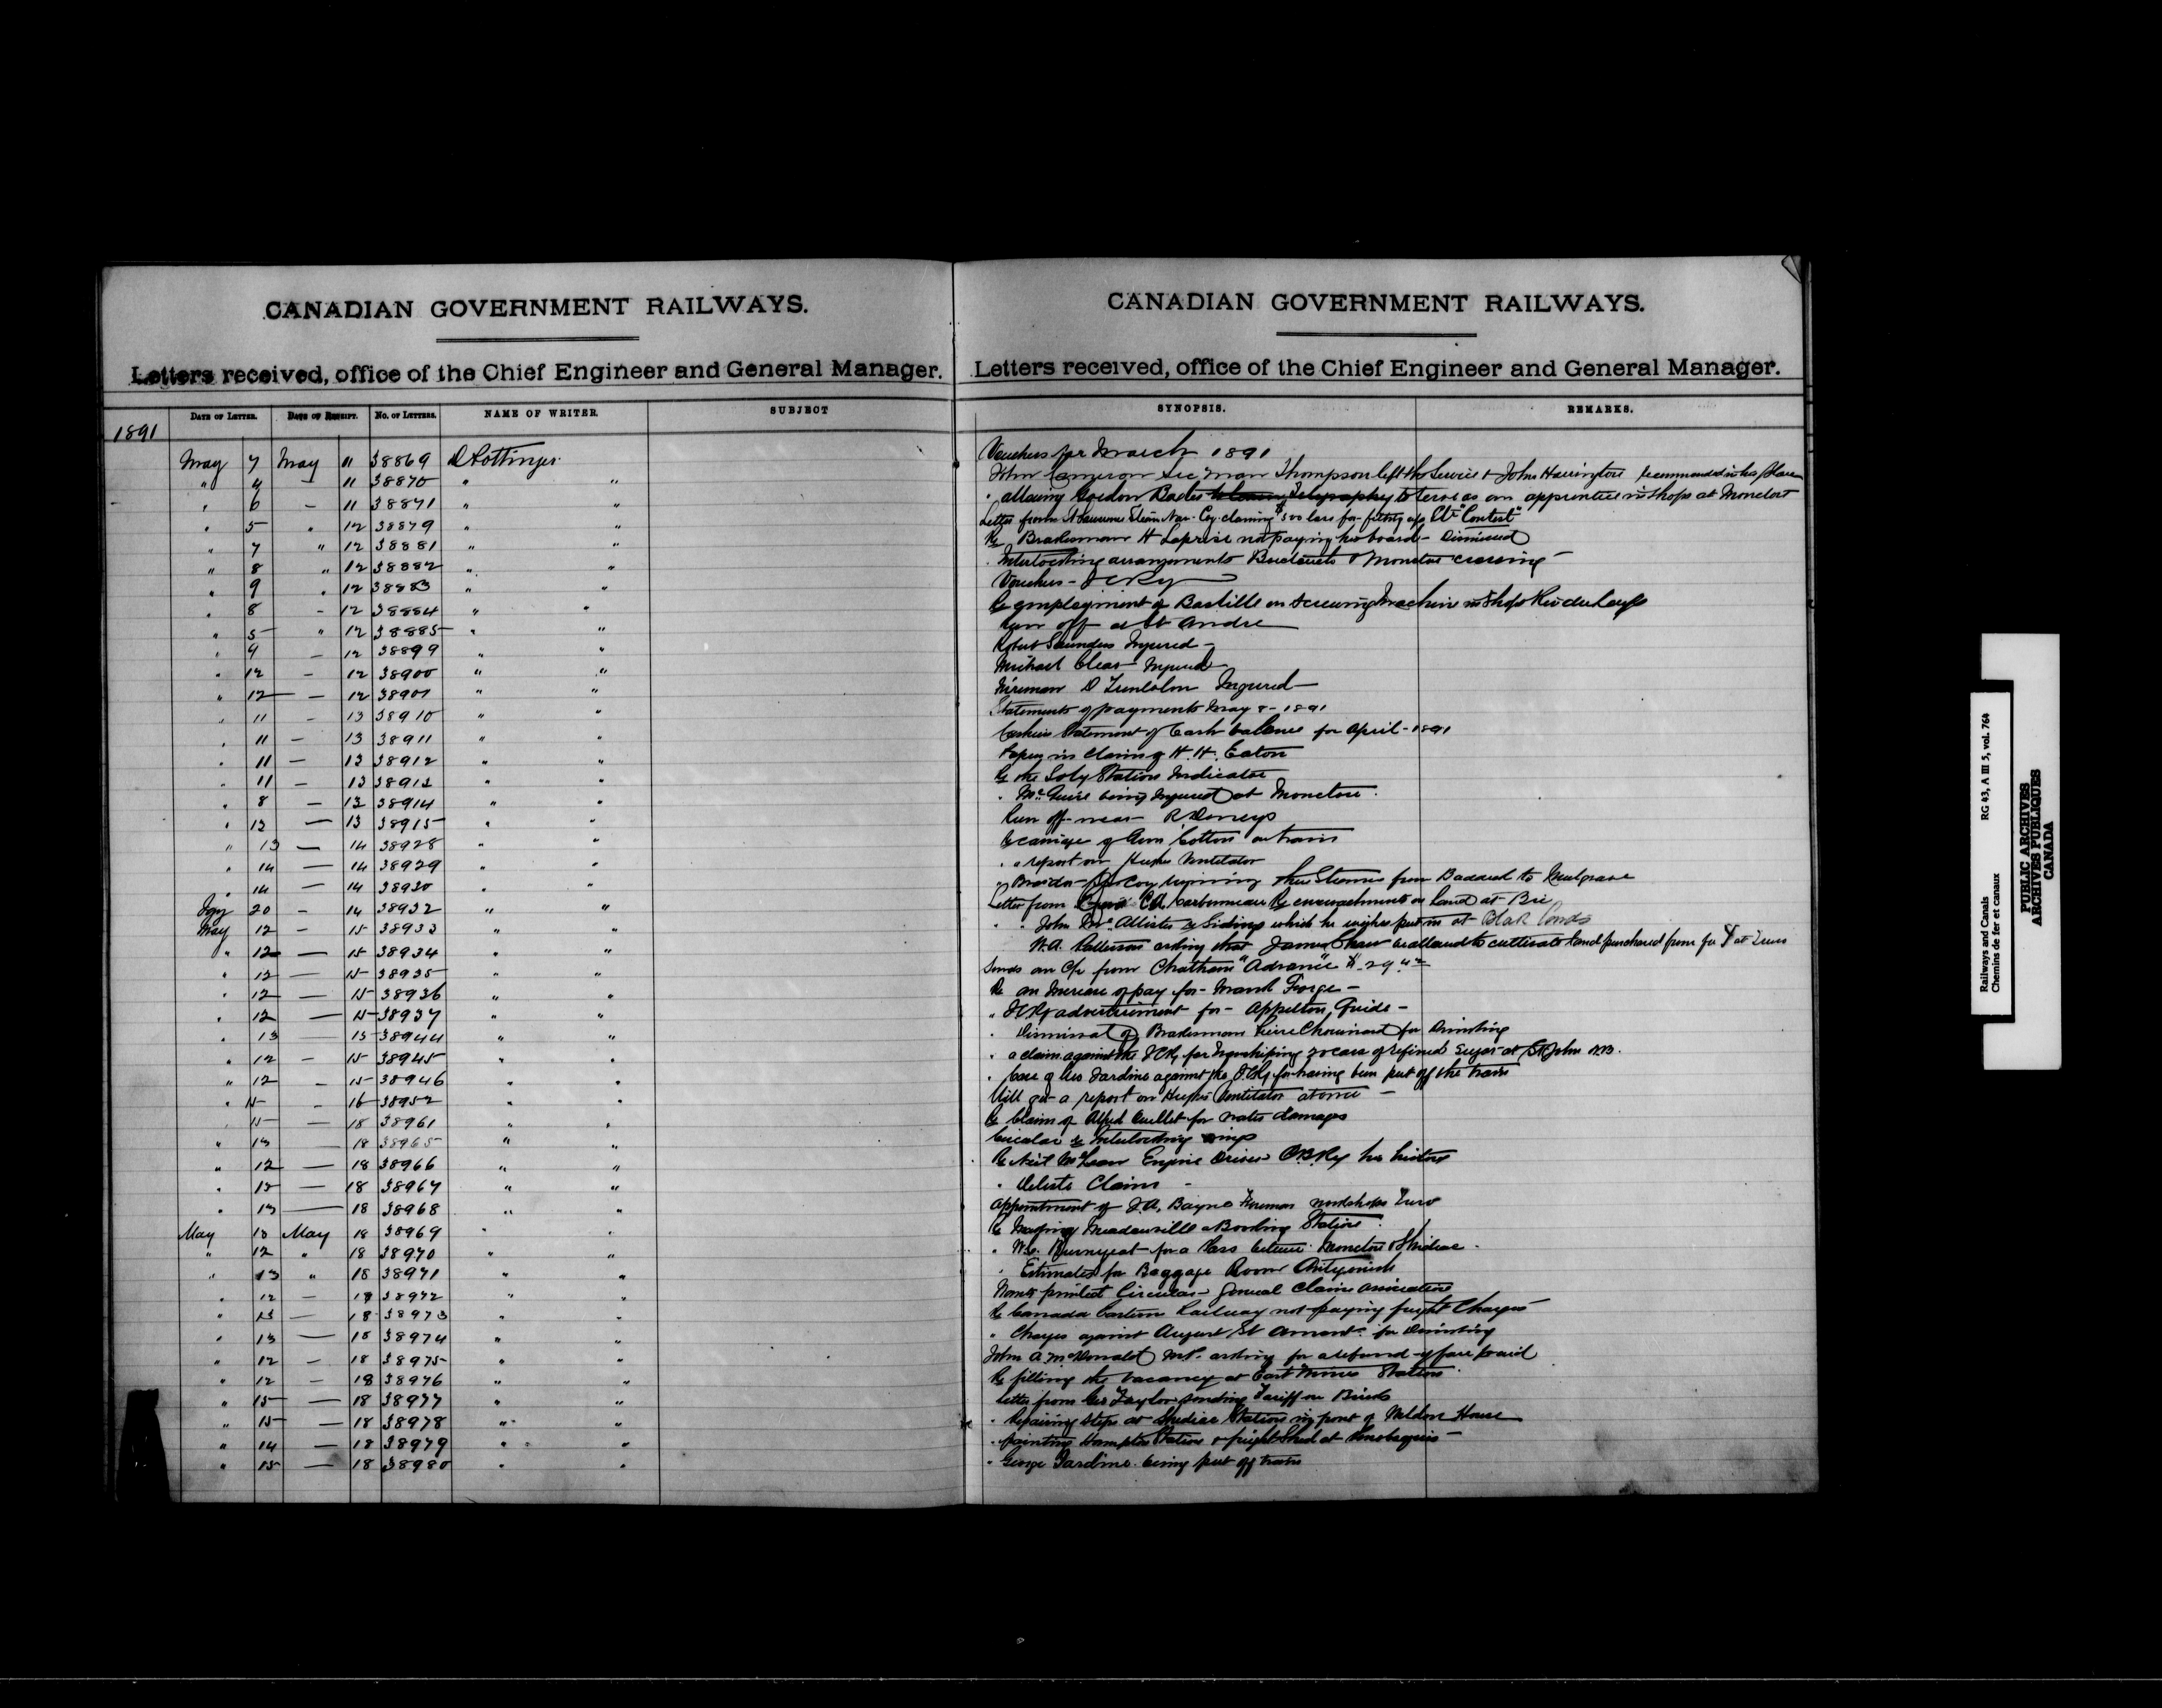 CANADIAN GOVERNMENT RAILWAYS.
Letters received, office of the Chief Engineer and General Manager.
DATE OF LETTER. DATE OF RECEIPT. NO. OF LETTERS. NAME OF WRITER. SUBJECT
1891
May 7 May 11 38869 D Pottinger
" 4 — 11 38870 " "
" 6 — 11 38871 " "
" 5 " 12 38879 " "
" 7 " 12 38881 " "
" 8 " 12 38882 " "
" 9 " 12 38883 " "
" 8 - 12 38884 " "
" 5 " 12 38885 " "
" 4 — 12 38899 " "
" 12 - 12 38900 " "
" 12 — 12 38901 " "
" 11 - 13 38910 " "
" 11 — 13 38911 " "
" 11 — 13 38912 " "
" 11 — 13 38913 " "
" 8 — 13 38914 " "
" 12 — 13 38915 " "
" 13 — 14 38928 " "
" 14 — 14 38929 " "
" 14 — 14 38930 " "
20 - 14 38932 " "
May 12 - 15 38933 " "
" 12 — 15 38934 " "
" 12 — 15 38935 " "
" 12 — 15 38936 " "
" 12 — 15 38937 " "
" 13 — 15 38944 " "
" 12 — 15 38945 " "
" 12 - 15 38946 " "
" 15 - 16 38952 " "
" 15 — 18 38961 " "
" 13 — 18 38965 " "
" 12 — 18 38966 " "
" 15 — 18 38967 " "
" 13 — 18 38968 " "
May 13 May 18 38969 " "
" 12 " 18 38970 " "
" 13 " 18 38971 " "
" 12 — 18 38972 " "
" 13 — 18 38973 " "
" 13 — 18 38974 " "
" 12 — 18 38975 " "
" 12 — 18 38976 " "
" 15 — 18 38977 " "
" 15 — 18 38978 " "
" 14 — 18 38979 " "
" 15 — 18 38980 " "
CANADIAN GOVERNMENT RAILWAYS.
Letters received, office of the Chief Engineer and General Manager.
SYNOPSIS. REMARKS.
Vouchers for March 1891
John Cameron Sec man Thompson left the Service & John Harrington recommended in his place
" allowing Gordon to serve as an apprentice in shops at Moncton
Letter from Steam Nav. Coy. claiming $500 for fitting up Str "Contest"
Re Brakesman H Laprise not paying his board - Dismissed
" Interlocking arrangements & Moncton crossing -
Vouchers - I C Ry
Re employment of Bastille on screwing machine in Shops Riv du Loup
Run off at St Andre
Robert Saunders Injured -
Michael Clear Injured
D Injured
Statements of payments May 8 - 1891
Cashiers Statement of Cash balance for April - 1891
Papers in claim of H. H. Eaton
Re the Station Indicator
" McGuire being injured at Moncton.
Run off near
Re carriage of Gun Cotton on trains
" " report on Ventilator
from Baddeck to Mulgrave
Letter from C. A. Carbonneau Re encroachments on land at Bic
" " John McAllister re Siding which he wishes put in at
W. A. Patterson asking that James Shaw be allowed to cultivate land purchased from for at Truro
Sends an a/c from Chatham "Advance"
Re an Increase of pay for
" I C Ry advertisement for Appelton, Guide -
" Dismissal of Brakesman Pierre Chouinard for Drinking
" a claim against the I C Ry for of refined sugar at St John N.B.
" Case of Geo Jardine against the I.C.Ry for having been put off the train
Will get a report on Ventilator at once -
Re Claim of Alfred Ouellet for water damages
Circular re Interlocking
Re Neil McLean Engine Driver his history
" Claim -
Appointment of J. A. Bayne Foreman workshops Truro
Re Making Meadowville a Booking Station
" for a Pass between Moncton & Shediac.
" Estimates for Baggage Room Antigonish
Wants printed Circular General Claims association
Re Canada Eastern Railway not paying freight Charges
" Charges against August St Amant for Drinking
John A McDonald M.P. asking for a refund of fare paid
Re filling the vacancy at Station
Letter from Geo Taylor sending Tariff on
" Repairing steps at Shediac Station in front of Weldon House
" painting Hampton Station & freight Shed at
" George Jardine being put off train
Railways and Canals
Chemins de fer et canaux
RG 43, A III 5, vol. 764
PUBLIC ARCHIVES
ARCHIVES PUBLIQUES
CANADA